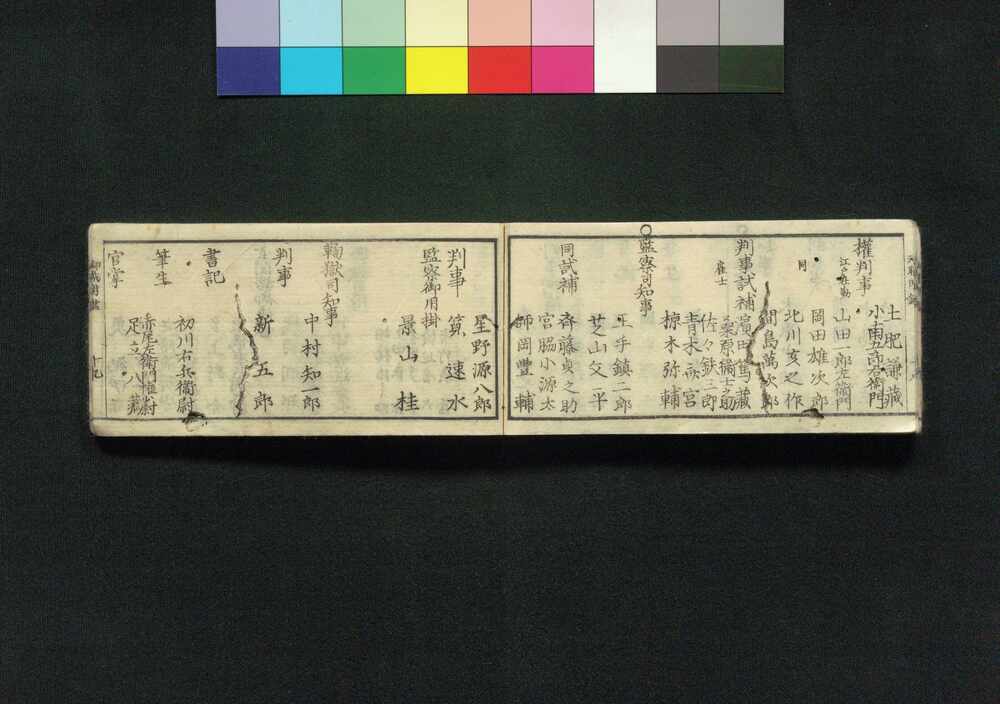 權判事 土肥謙藏
小南五郎右衛門
江戸在勤 山田一郎左衛門
岡田雄次郎
同 北川亥之作
間島萬次郎
判事試補 濱田篤藏
桑原儀之助
雇士 佐々鉄三郎
青木
椋木弥輔
○監察司知事
玉手鎮二郎
芝山文平
同試補 斉藤貞之助
宮脇小源太
師岡豐輔
判事 星野源八郎
筧速水
監察御用掛 景山桂
鞠獄司知事 中村知一郎
判事 新五郎
書記 初川右兵衞尉
筆生 赤尾左衛門權少尉
足立八藏
官掌